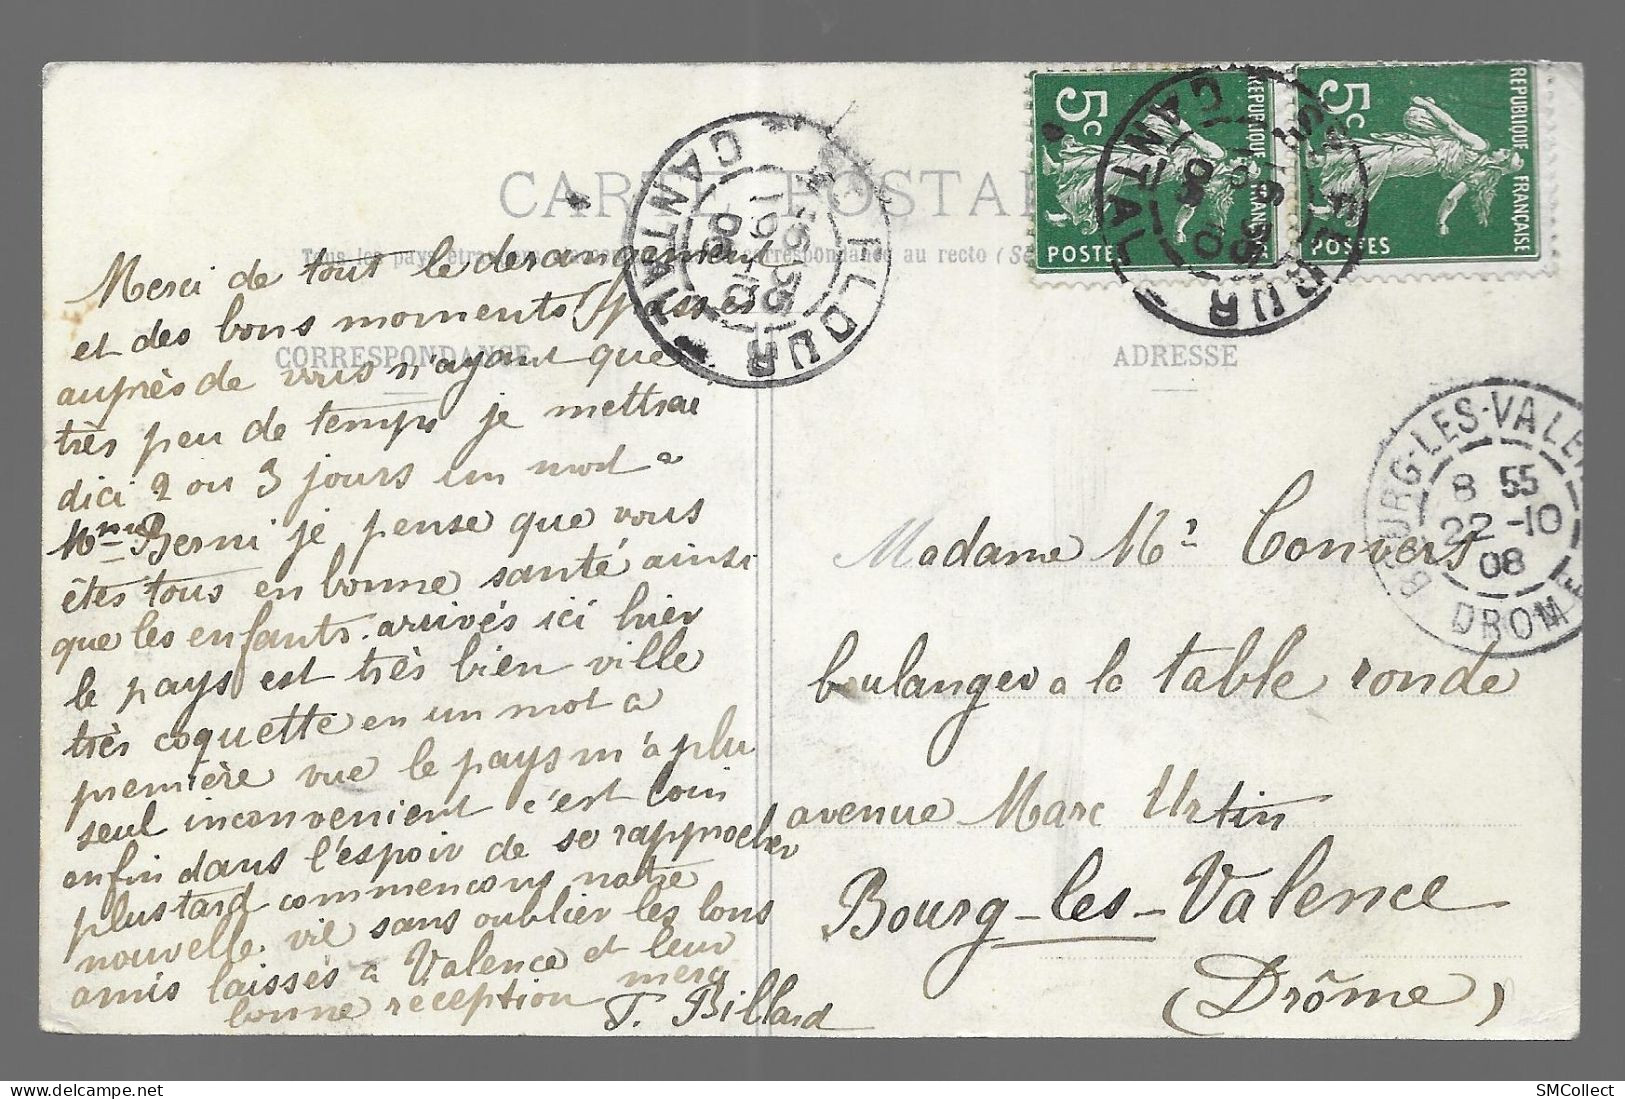 CARTE POSTALE
CORRESPONDANCE
ADRESSE
Merci de tout le derangement
et des bons moments passés
auprès de vous n'ayant que
très peu de temps je mettrai
dici 2 ou 3 jours un mot a
Mme Berni je pense que vous
êtes tous en bonne santé ainsi
que les enfants. arrivés ici hier
le pays est très bien ville
très coquette en un mot a
première vue le pays m'a plu
seul inconvenient c'est loin
enfin dans l'espoir de se rapprocher
plustard commencons notre
nouvelle vie sans oublier les bons
amis laissés a Valence et leur
bonne réception merci
T. Billard
Madame Mr Convers
boulanger a la table ronde
avenue Marc Urtin
Bourg-les-Valence
(Drôme)
5c
REPUBLIQUE FRANÇAISE
POSTES
5c
REPUBLIQUE FRANÇAISE
POSTES
FLOUR
CANTAL
FLOUR
CANTAL
BOURG-LES-VALE
8 55
22-10
08
DROME
SMCollect